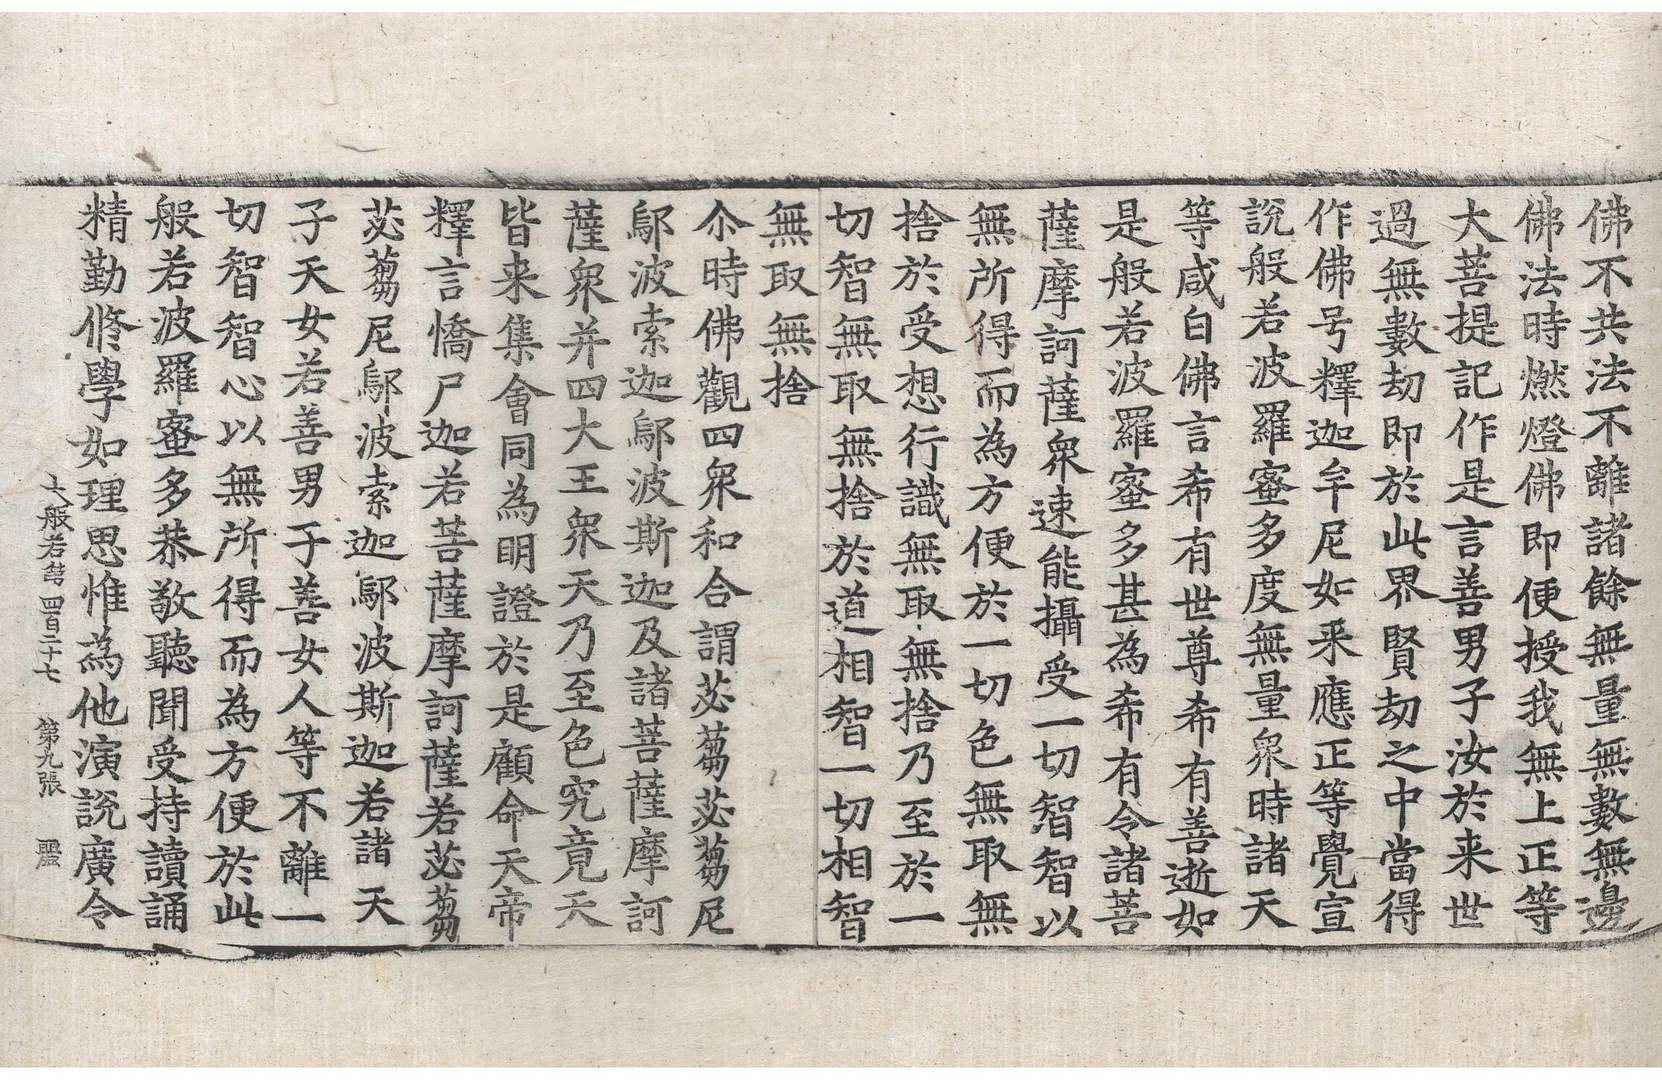 佛不共法不離諸餘無量無數無邊
佛法時燃燈佛即便授我無上正等
大菩提記作是言善男子汝於来世
過無數劫即於此界賢劫之中當得
作佛号釋迦牟尼如来應正等覺宣
說般若波羅蜜多度無量衆時諸天
等咸白佛言希有世尊希有善逝如
是般若波羅蜜多甚為希有令諸菩
薩摩訶薩衆速能攝受一切智智以
無所得而為方便於一切色無取無
捨於受想行識無取無捨乃至於一
切智無取無捨於道相智一切相智
無取無捨
尒時佛觀四衆和合謂苾芻苾芻尼
鄔波索迦鄔波斯迦及諸菩薩摩訶
薩衆并四大王衆天乃至色究竟天
皆来集會同為明證於是顧命天帝
釋言憍尸迦若菩薩摩訶薩若苾芻
苾芻尼鄔波索迦鄔波斯迦若諸天
子天女若善男子善女人等不離一
切智智心以無所得而為方便於此
般若波羅蜜多恭敬聽聞受持讀誦
精勤修學如理思惟為他演說廣令
大般若経 四百二十七 第九張 麗